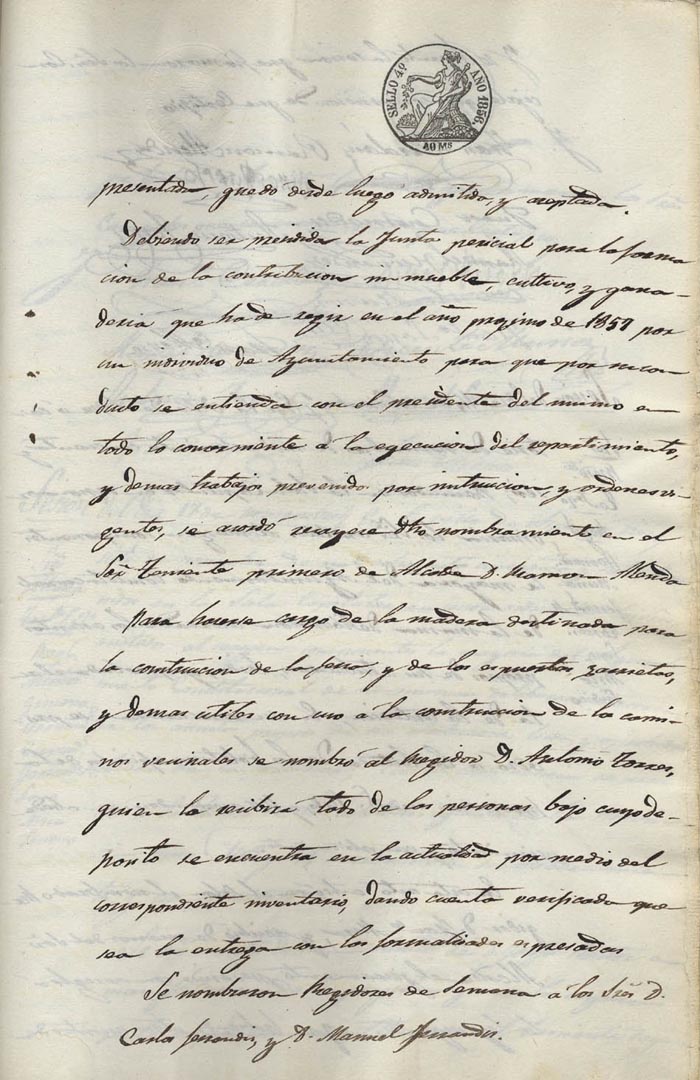 SELLO 4º AÑO 1856.
40 Ms
presentada, quedó desde luego admitida, y aceptada.
Debiendo ser precidida la Junta pericial para la forma
cion de la contribucion inmueble, cultivo, y gana-
deria que ha de regir en el año proximo de 1857 por
un individuo de Ayuntamiento para que por su con
ducto se entienda con el presidente del mismo en
todo lo concerniente à la egecucion del repartimiento,
y demas trabajos prevenidos por intrucion, y ordenes vi-
gentes, se acordó recayese dho nombramiento en el
Sor. Teniente primero de Alcalde D. Ramon Merida
Para hacerse cargo de la madera destinada para
la construcion de la feria, y de los espuertas, zarrietas,
y demas utiles con uso à la construccion de los cami-
nos vecinales se nombró al Regidor D. Antonio Torres,
quien la recibirá todo de las personas bajo cuyo de-
posito se encuentra en la actualidad por medio del
correspondiente inventario, dando cuenta verificada que
sea la entrega con las formalidades espresadas
Se nombraron Regidores de Semana a los Sres D.
Carlos Ferrandis, y D. Manuel Ferrandis.